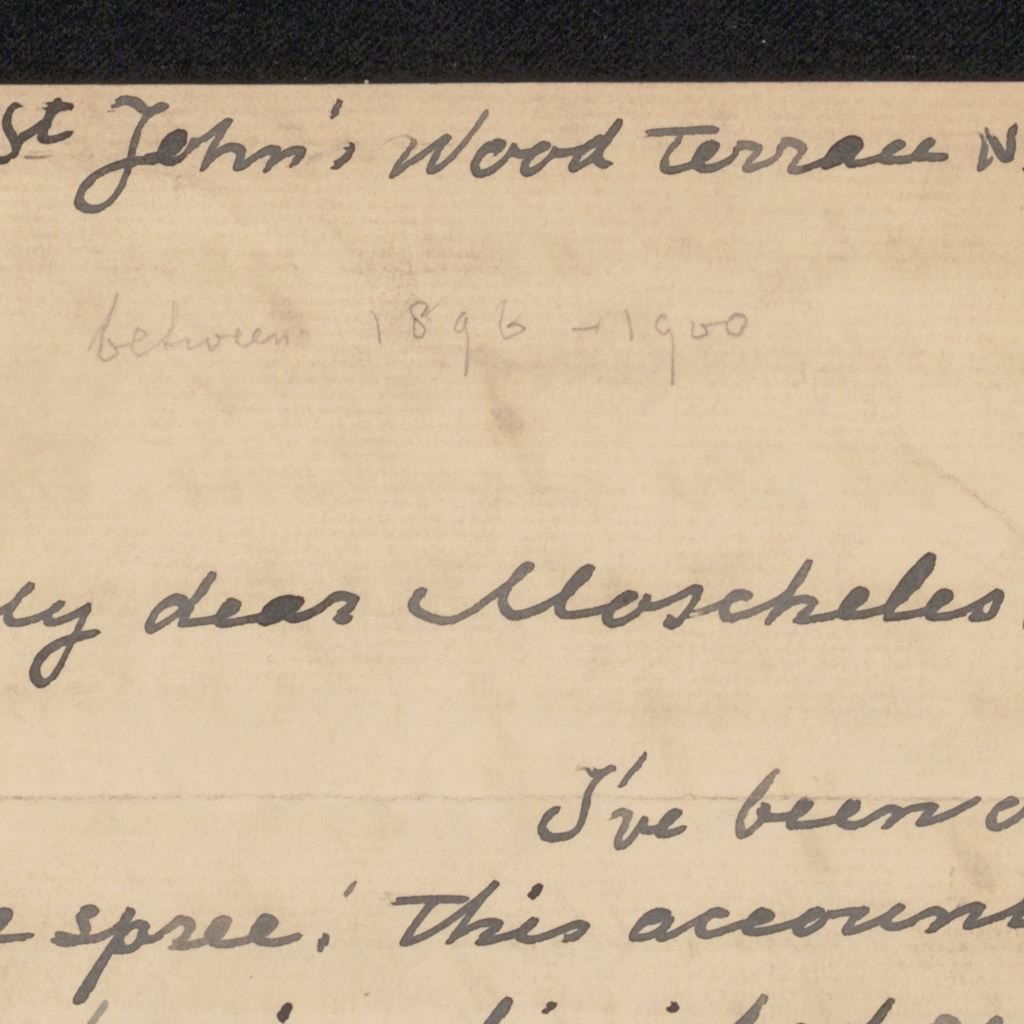 St John's Wood Terrace N.
between 1896 - 1900
My dear Moscheles.
I've been
spree! This account